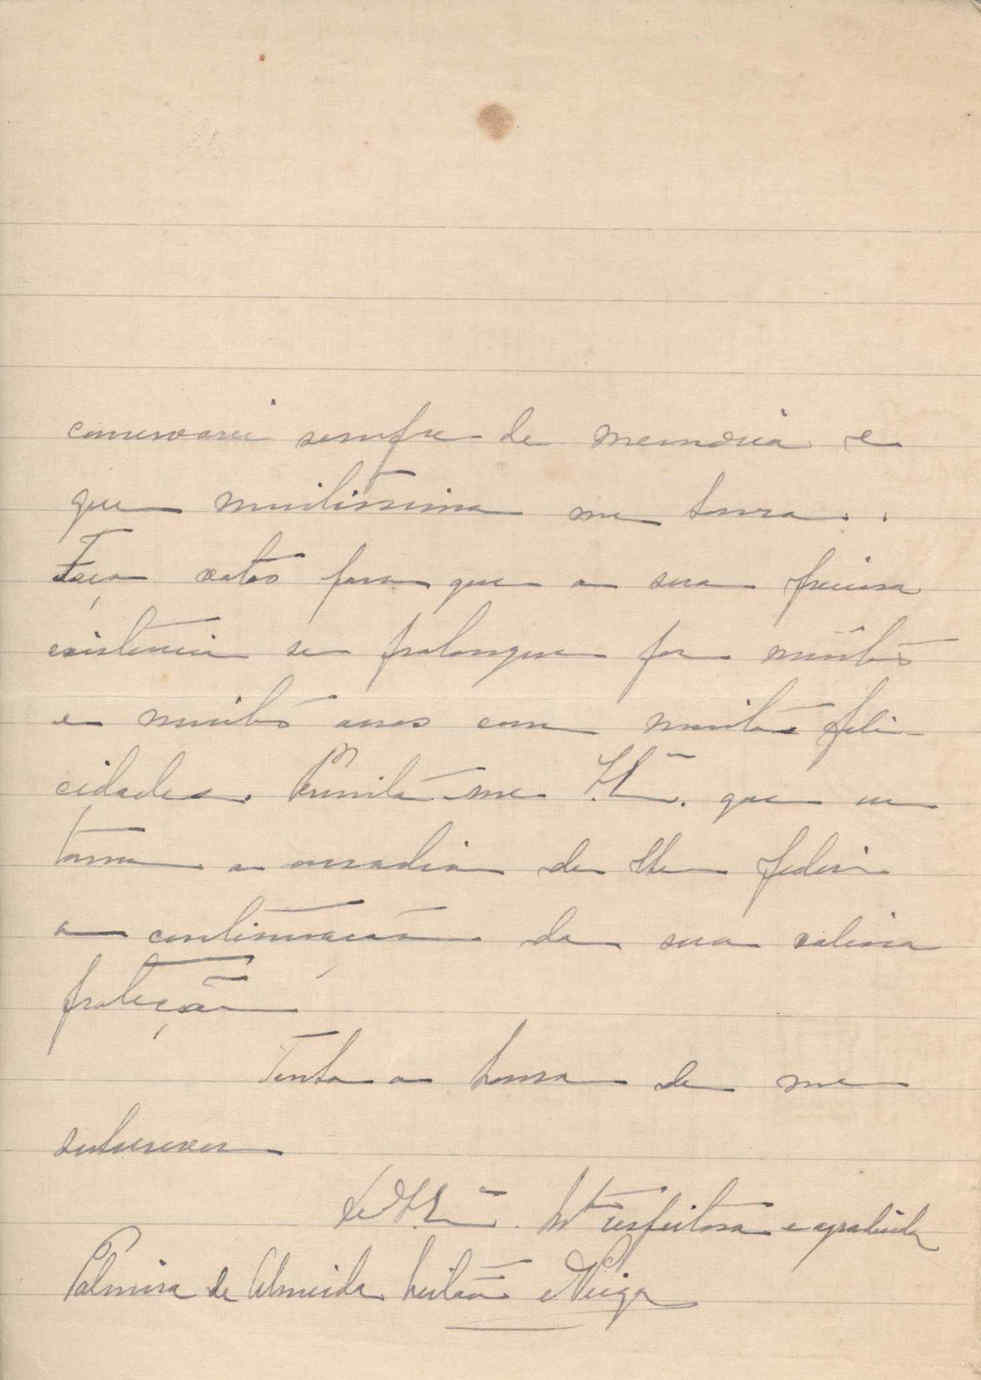 conservarei sempre de memoria e
que muitissimo me honra..
Faço votos para que a sua preciosa
existencia se prolongue por muitos
e muitos anos com muitas feli-
cidades. Permita-me que eu
tome a ousadia de lhe pedir
a continuação da sua valiosa
proteção
Tenho a honra de me
subscrever
De V. Exª. Mtº respeitosa e agradecida
Palmira de Almeida Leitão Veiga